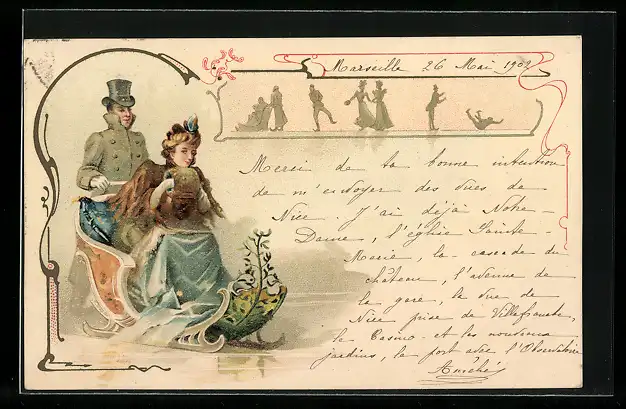 Marseille 26 Mai 1902
Merci de ta bonne intention
de m'envoyer des vues de
Nice. J'ai déjà Notre-
Dame, l'église Sainte-
Marie, la cascade du
château, l'avenue de
la gare, la vue de
Nice prise de Villefranche,
le Casino et les nouveaux
jardins, le port avec l'Observatoire